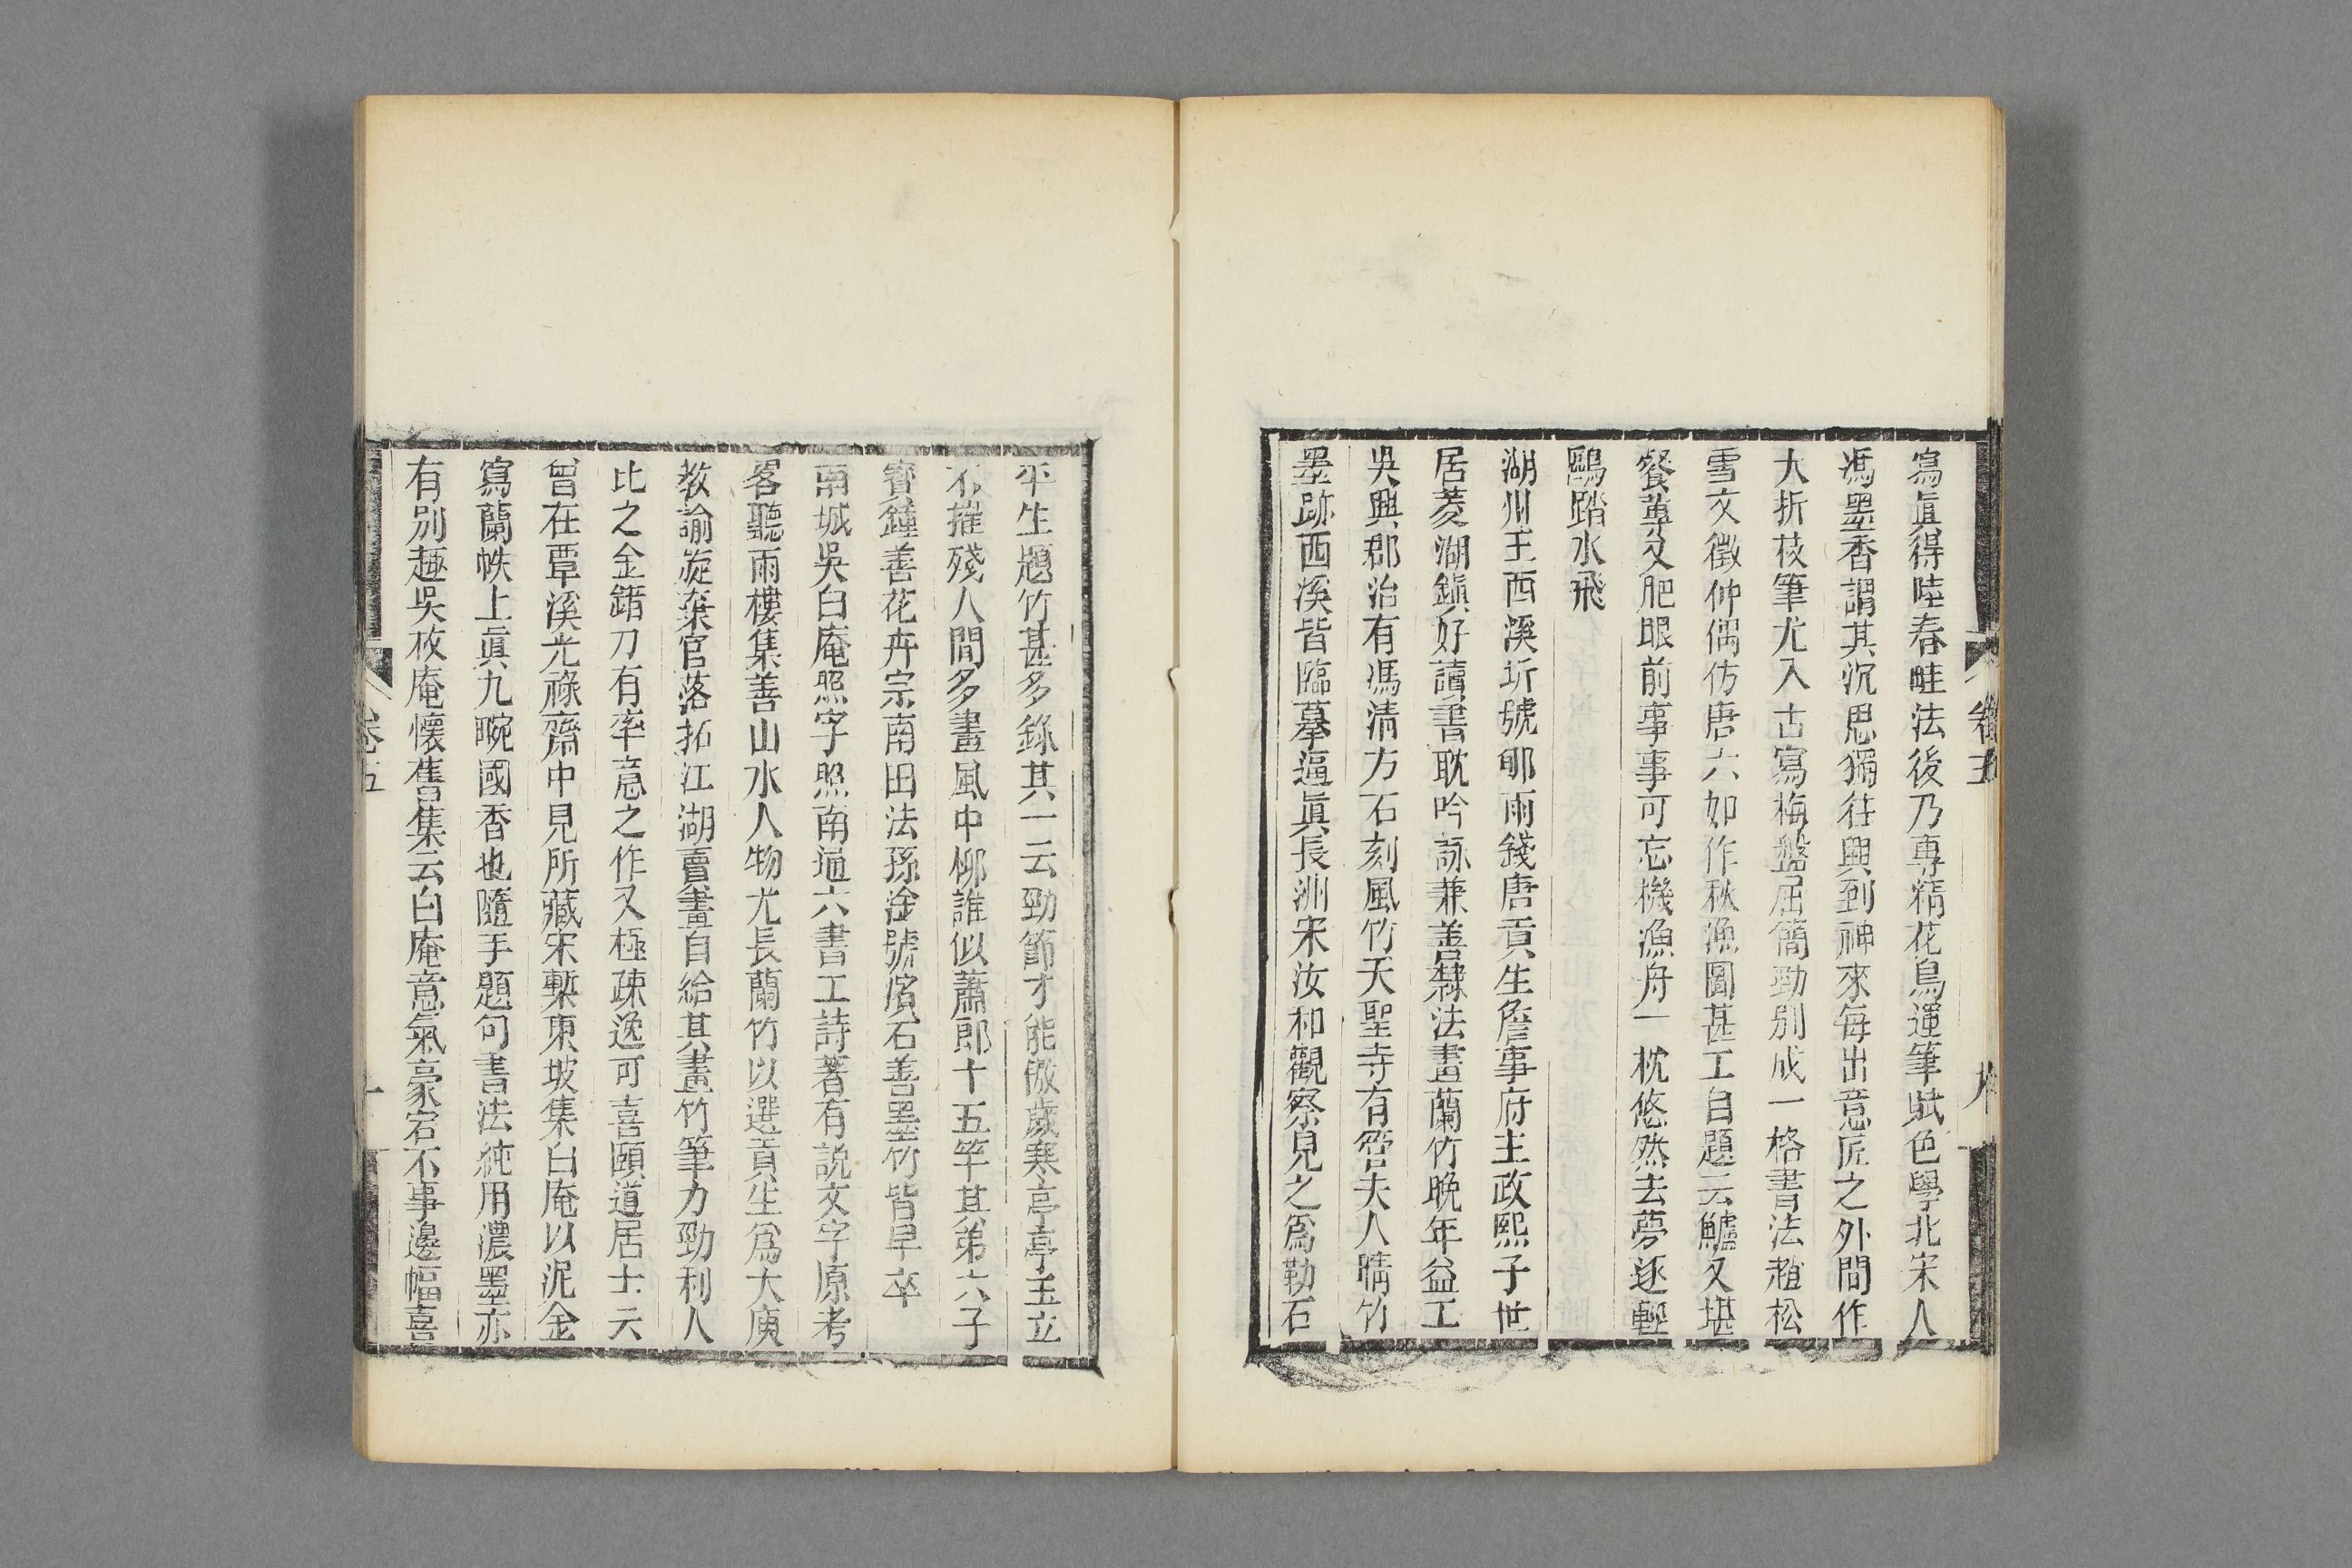 寫眞得陸春畦法後乃專精花鳥運筆賦色學北宋人
馮墨香謂其沉思獨往興到神來每出意匠之外間作
大折枝筆尤入古寫梅盤屈簡勁別成一格書法趙松
雪文徵仲偶仿唐六如作秋漁圖甚工自題云鱸又堪
餐蓴又肥眼前事事可忘機漁舟一枕悠然去夢逐輕
鷗踏水飛
湖州王西溪圻號郇雨錢唐貢生詹事府主政熙子世
居菱湖鎭好讀書耽吟詠兼善隸法畫蘭竹晚年益工
吳興郡治有馮淸方石刻風竹天聖寺有管夫人晴竹
墨跡西溪皆臨摹逼眞長洲宋汝和觀察見之爲勒石
卷五
平生題竹甚多錄其一云勁節才能傲歲寒亭亭玉立
不摧殘人間多畫風中柳誰似蕭郎十五竿其弟六子
寶鐘善花卉宗南田法孫淦號濱石善墨竹皆早卒
南城吳白庵照字照南通六書工詩著有說文字原考
畧聽雨樓集善山水人物尤長蘭竹以選貢生爲大庾
敎諭旋棄官落拓江湖賣畫自給其畫竹筆力勁利人
比之金錯刀有率意之作又極疎逸可喜頤道居士云
曾在覃溪光祿齋中見所藏宋槧東坡集白庵以泥金
寫蘭帙上眞九畹國香也隨手題句書法純用濃墨亦
有別趣吳枚庵懷舊集云白庵意氣豪宕不事邊幅喜
卷五
十